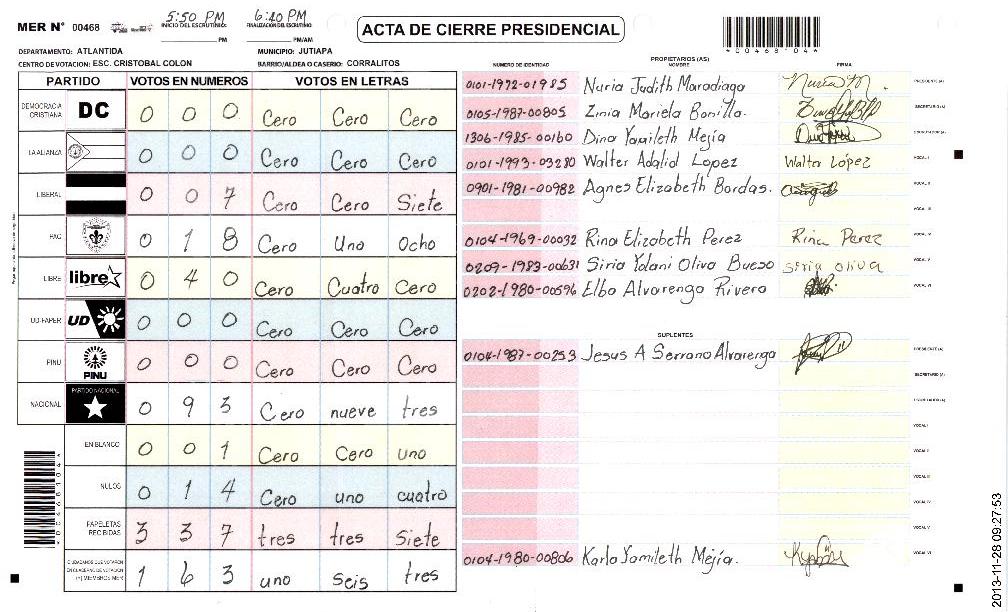 MER N° 00468
5:50 PM
INICIO DEL ESCRUTINIO:
PM
6:40 PM
FINALIZACIÓN DEL ESCRUTINIO:
PM/AM
ACTA DE CIERRE PRESIDENCIAL
*00468104*
DEPARTAMENTO: ATLANTIDA
MUNICIPIO: JUTIAPA
CENTRO DE VOTACION: ESC. CRISTOBAL COLON
BARRIO/ALDEA O CASERIO: CORRALITOS
PARTIDO VOTOS EN NUMEROS VOTOS EN LETRAS
DEMOCRACIA CRISTIANA DC 0 0 0 Cero Cero Cero
LA ALIANZA 0 0 0 Cero Cero Cero
LIBERAL 0 0 7 Cero Cero Siete
PAC 0 1 8 Cero Uno Ocho
LIBRE libre 0 4 0 Cero Cuatro Cero
UD-FAPER UD 0 0 0 Cero Cero Cero
PINU PINU 0 0 0 Cero Cero Cero
NACIONAL PARTIDO NACIONAL 0 9 3 Cero nueve tres
EN BLANCO 0 0 1 Cero Cero uno
NULOS 0 1 4 Cero uno cuatro
PAPELETAS RECIBIDAS 3 3 7 tres tres Siete
CIUDADANOS QUE VOTARON EN CUADERNO DE VOTACION (+) MIEMBROS MER 1 6 3 uno seis tres
PROPIETARIOS (AS)
NUMERO DE IDENTIDAD NOMBRE FIRMA
0101-1972-01985 Nuria Judith Maradiaga PRESIDENTE (A)
0105-1987-00805 Zinia Mariela Bonilla. SECRETARIO (A)
1306-1985-00160 Dina Yamileth Mejía ESCRUTADOR (A)
0101-1993-03280 Walter Adalid Lopez Walter López VOCAL I
0901-1981-00982 Agnes Elizabeth Bordas. VOCAL II
VOCAL III
0104-1969-00032 Rina Elizabeth Perez Rina Perez VOCAL IV
0209-1983-00631 Siria Yolani Oliva Bueso Siria oliva VOCAL V
0202-1980-00596 Elba Alvarenga Rivera VOCAL VI
SUPLENTES
0104-1987-00253 Jesus A Serrano Alvarenga PRESIDENTE (A)
SECRETARIO (A)
ESCRUTADOR (A)
VOCAL I
VOCAL II
VOCAL III
VOCAL IV
VOCAL V
0104-1980-00806 Karla Yamileth Mejía. VOCAL VI
2013-11-28 09:27:53